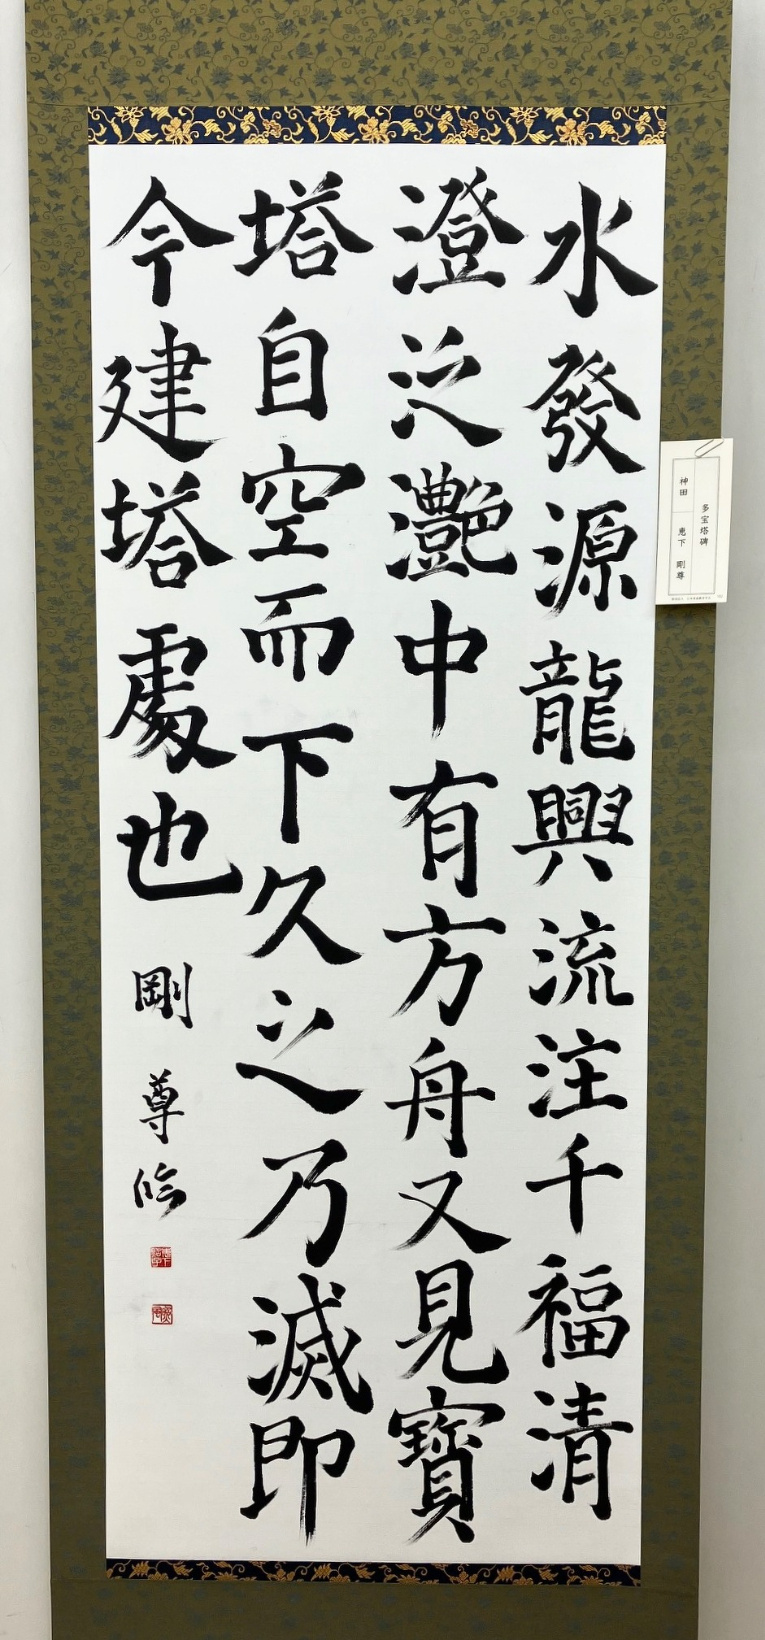 水發源龍興流注千福清
澄泛灧中有方舟又見寶
塔自空而下久之乃滅即
今建塔處也 剛尊臨
多宝塔碑
神田 恵下 剛尊